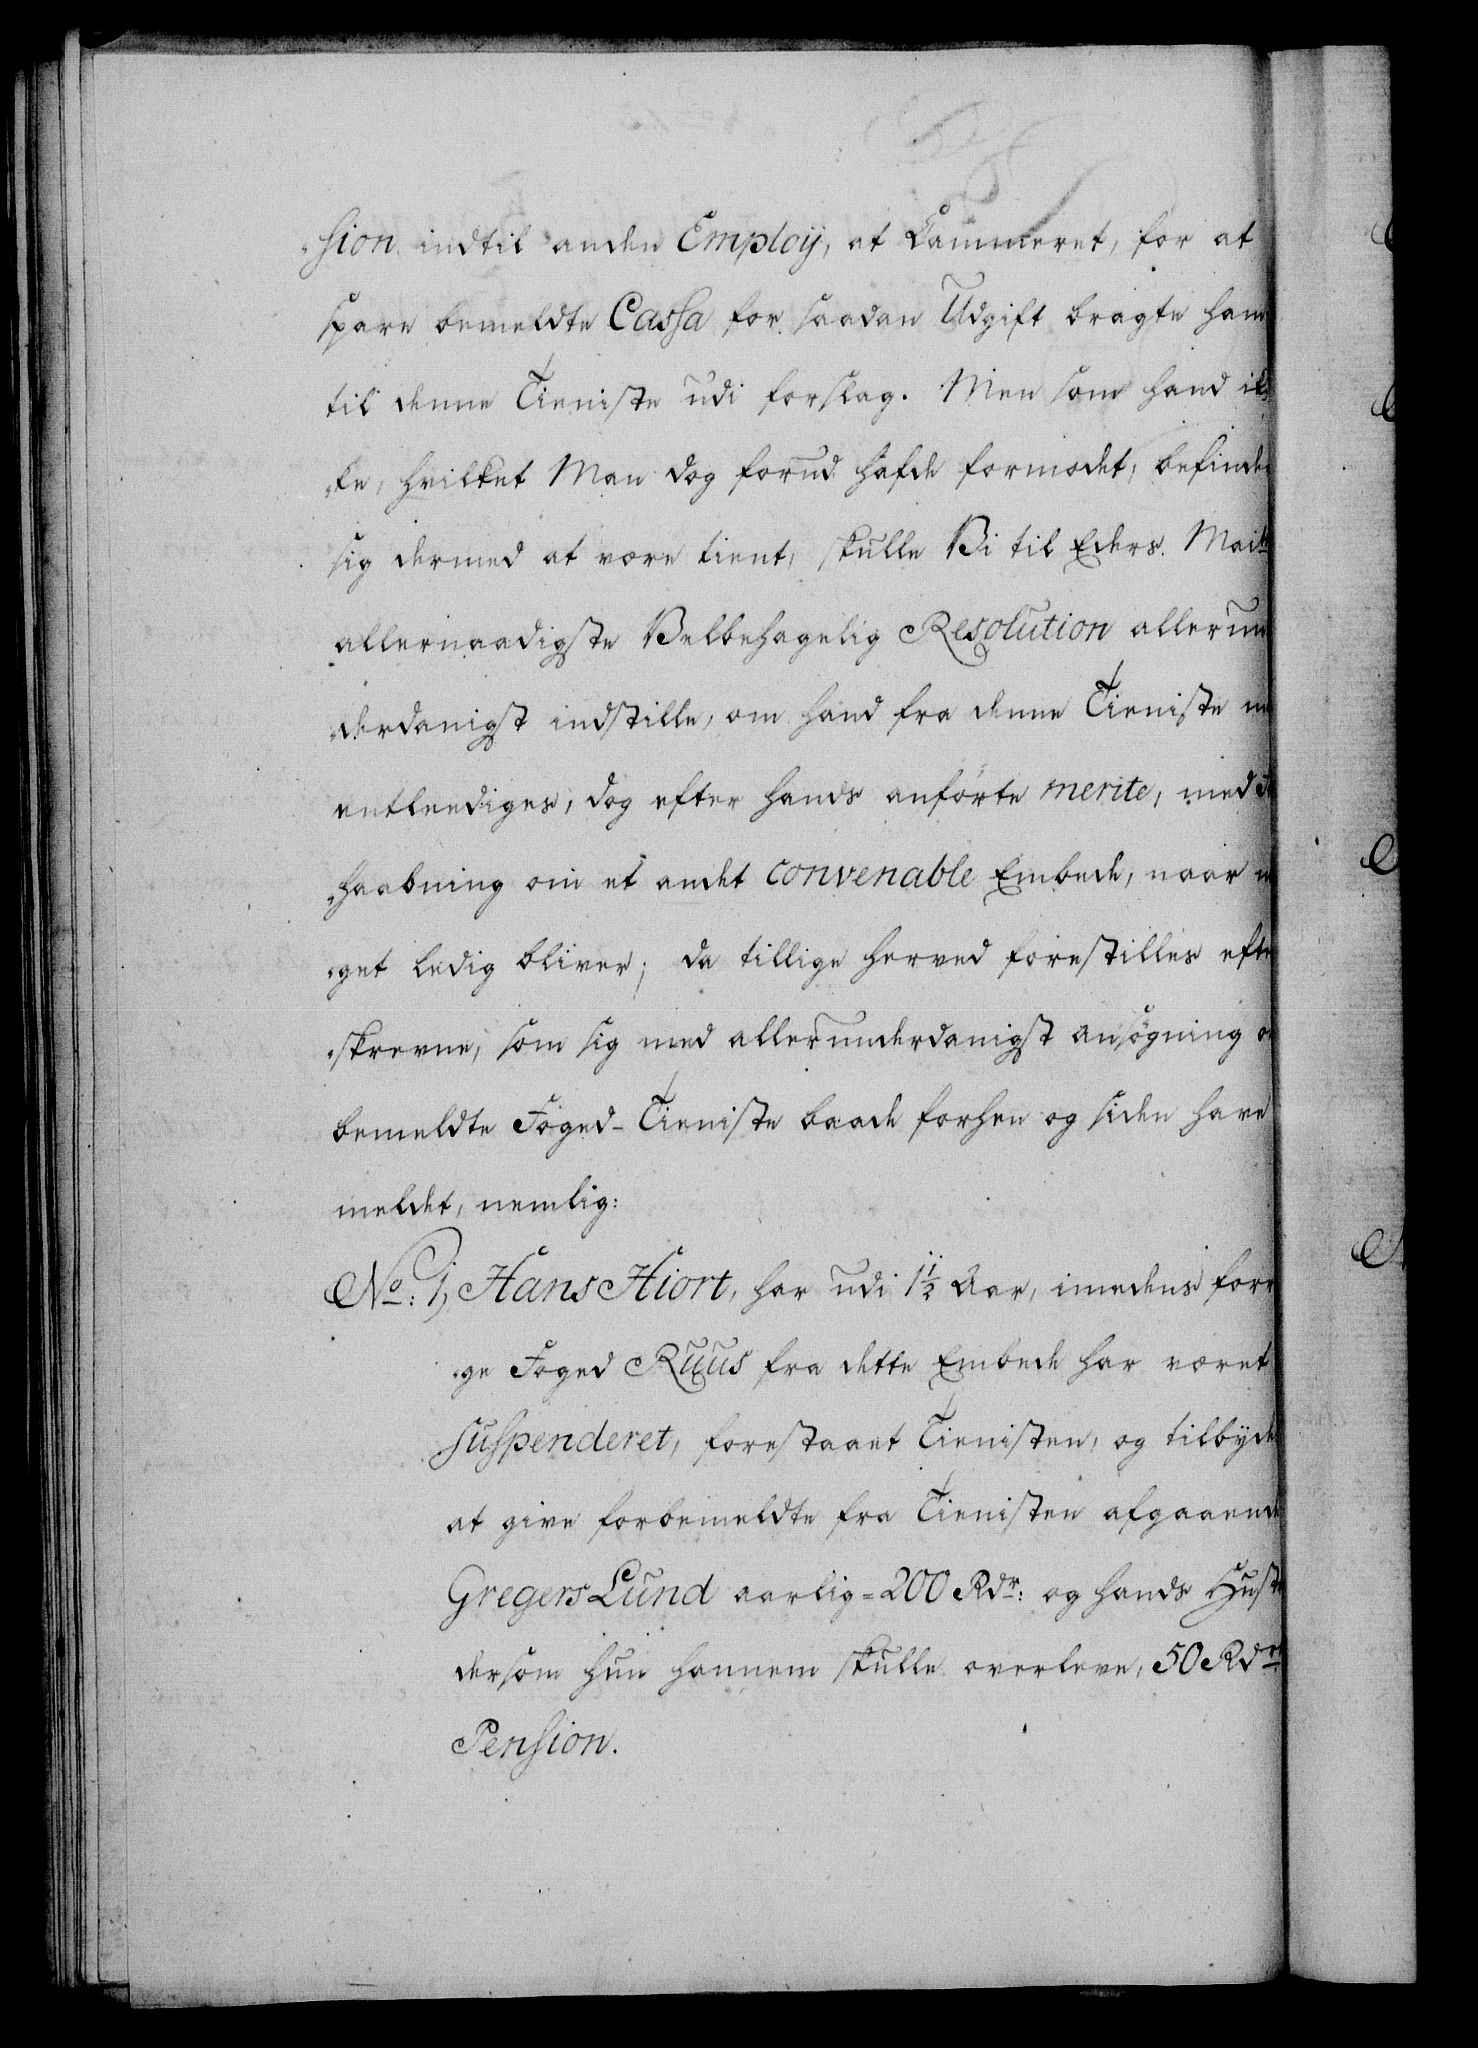 sion indtil anden Employ, at Cammeret, for at
spare bemeldte Cassa for saadan Udgift bragte ham
til denne Tieniste udi forslag. Men som hand ik-
ke, hvilket Man dog forud hafde formodet, befinder
sig dermed at være tient, skulle Vi til Eders Maits
allernaadigste Velbehagelig Resolution allerun-
derdanigst indstille, om hand fra denne Tieniste
entleediges, dog efter hands anförte merite, med
haabning om et andet convenable Embede, naar
get ledig bliver; da tillige herved forestilles efter
skrevne, som sig med allerunderdanigst ansögning
bemeldte Foged-Tieniste baade forhen og siden have
meldet, nemlig:
No: 1, Hans Hiort, har udi 1½ Aar, imedens forri
ge Foged Ruus fra dette Embede har været
suspenderet, forestaaet Tienisten, og tilbyder
at give forbemeldte fra Tienisten afgaaende
Gregers Lund aarlig=200 Rdr: og hands Hustr
dersom hun hannem skulle overleve, 50 Rdr:
Pension.